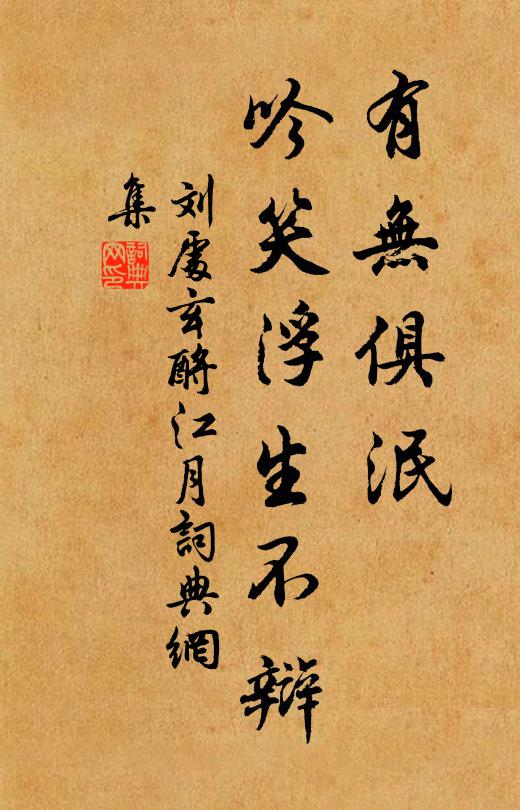 有無俱泯
吟笑浮生不辯
刘處玄酹江月詞典網
集
詞典
网印